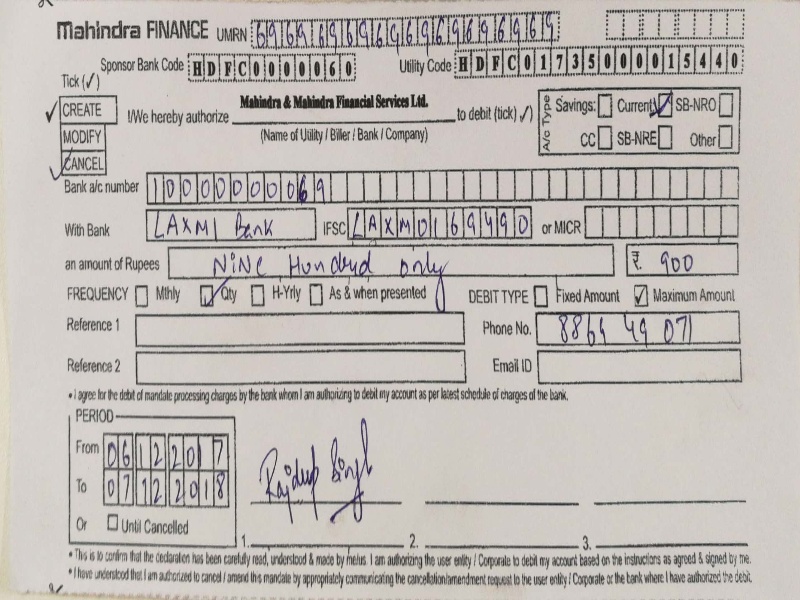 Mahindra FINANCE UMRN 69696969696969696969
Sponsor Bank Code HDFC0000060 Utility Code HDFC01735000015440
Tick (✓)
CREATE
MODIFY
CANCEL
I/We hereby authorize Mahindra & Mahindra Financial Services Ltd. to debit (tick) ✓)
(Name of Utility / Biller / Bank / Company)
A/c Type Savings: Current SB-NRO
CC SB-NRE Other
Bank a/c number 10000000069
With Bank LAXMI Bank IFSC LAXM0169490 or MICR
an amount of Rupees NiNe Hundred only ₹ 900
FREQUENCY Mthly Qty H-Yrly As & when presented DEBIT TYPE Fixed Amount ✓ Maximum Amount
Reference 1 Phone No. 8869 49 071
Reference 2 Email ID
• I agree for the debit of mandate processing charges by the bank whom I am authorizing to debit my account as per latest schedule of charges of the bank.
PERIOD
From 06122017
To 07122018
Or Until Cancelled
Rajdeep Singh
1. 2. 3.
• This is to confirm that the declaration has been carefully read, understood & made by me/us. I am authorizing the user entity / Corporate to debit my account based on the instructions as agreed & signed by me.
• I have understood that I am authorized to cancel / amend this mandate by appropriately communicating the cancellation/amendment request to the user entity / Corporate or the bank where I have authorized the debit.